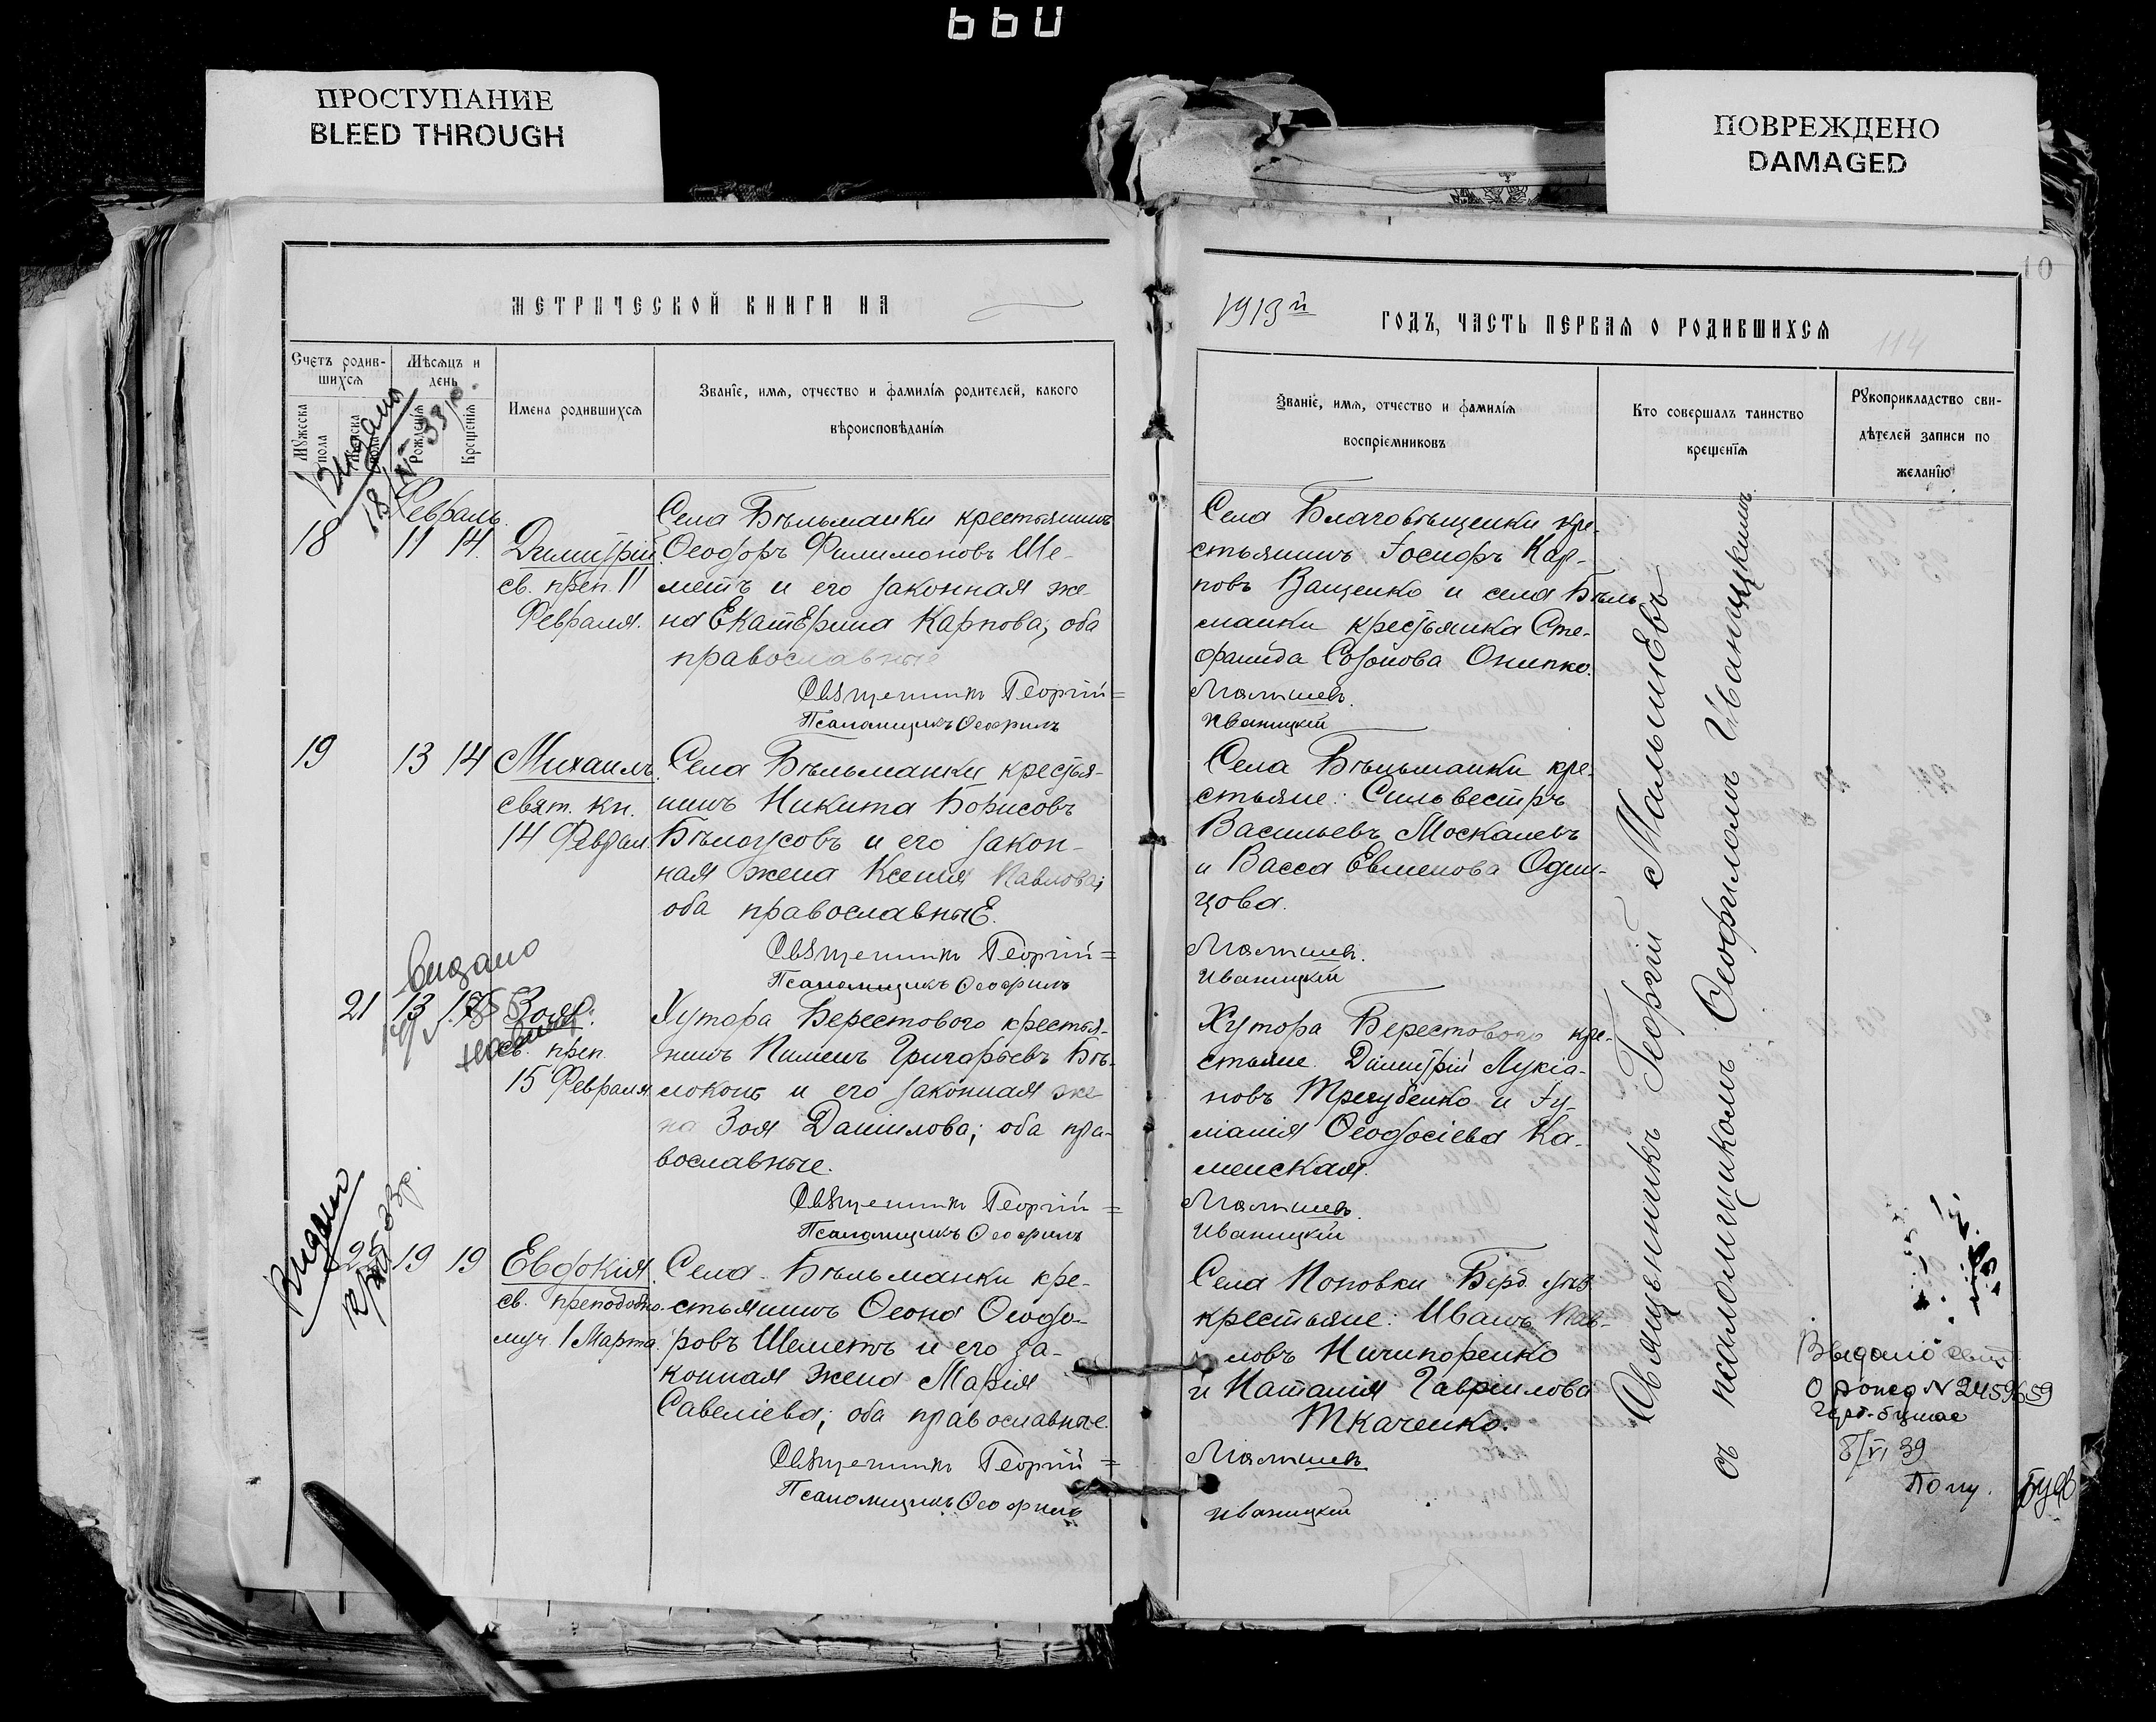 ПРОСТУПАНИЕ
BLEED THROUGH
ПОВРЕЖДЕНО
DAMAGED
10
МЕТРИЧЕСКОЙ КНИГИ НА
1913й
ГОДЪ, ЧАСТЬ ПЕРВАЯ О РОДИВШИХСЯ
114
Счетъ родив-
шихся
Мѣсяцъ и
день
Мужеска
пола
Женска
пола
Рожденія
Крещенія
Имена родившихся
Званіе, имя, отчество и фамилія родителей, какого
вѣроисповѣданія
Званіе, имя, отчество и фамилія
воспріемниковъ
Кто совершалъ таинство
крещенія
Рукоприкладство сви-
дѣтелей записи по
желанію
Видано
Февраль
18
11 14.
Димитрій.
св. преп. 11
Февраля.
Села Бѣльманки крестьянинъ
Ѳеодоръ Филимоновъ Ше-
метъ и его законная же-
на Екатерина Карпова; оба
православные
Священникъ Георгій =
Псаломщикъ Ѳеофилъ
Села Благовѣщенки кре-
стьянинъ Іосифъ Кар-
повъ Ващенко и села Бѣль-
манки крестьянка Сте-
фанида Созонова Онипко.
Малышевъ.
Иваницкій
19
13 14
Михаилъ.
свят. кн.
14 Феврал.
Села Бѣльманки крестья-
нинъ Никита Борисовъ
Бѣлоусовъ и его закон-
ная жена Ксенія Павлова;
оба православные.
Священникъ Георгій =
Псаломщикъ Ѳеофилъ
Села Бѣльманки кре-
стьяне: Сильвестръ
Васильевъ Москалевъ
и Васса Евменова Один-
цова.
Малышевъ.
Иваницкій
видано
21
13
Зоя.
св. преп.
15 Февраля
Хутора Берестового крестья-
нинъ Пименъ Григорьевъ Бѣ-
локонь и его законная же-
на Зоя Даниилова; оба пра-
вославные.
Священникъ Георгій =
Псаломщикъ Ѳеофилъ
Хутора Берестового кре-
стьяне. Димитрій Лукіа-
новъ Трегубенко и Іу-
ліанія Ѳеодосіева Ка-
менская.
Малышевъ.
Иваницкій
Видано
19 19
Евдокія.
св. преподобно-
муч. 1 Марта
Села Бѣльманки кре-
стьянинъ Ѳеона Ѳеодо-
ровъ Шеметъ и его за-
конная жена Марія
Савеліева; оба православные.
Священникъ Георгій =
Псаломщикъ Ѳеофилъ
Села Поповки Берд. уѣз.
крестьяне: Иванъ Пав-
ловъ Ничипоренко
и Наталія Гавріилова
Ткаченко.
Малышевъ
Иваницкій
Священникъ Георгій Малышевъ
съ псаломщикомъ Ѳеофиломъ Иваницкимъ
Выдано
8/VI 39